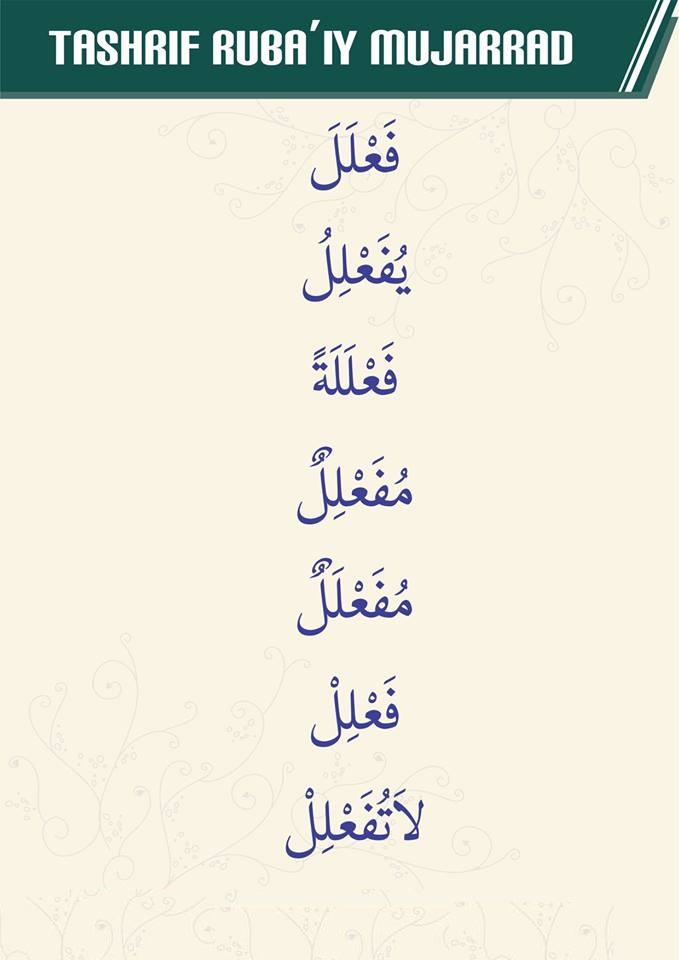 TASHRIF RUBA'IY MUJARRAD
فَعْلَلَ
يُفَعْلِلُ
فَعْلَلَةً
مُفَعْلِلٌ
مُفَعْلَلٌ
فَعْلِلْ
لاَتُفَعْلِلْ